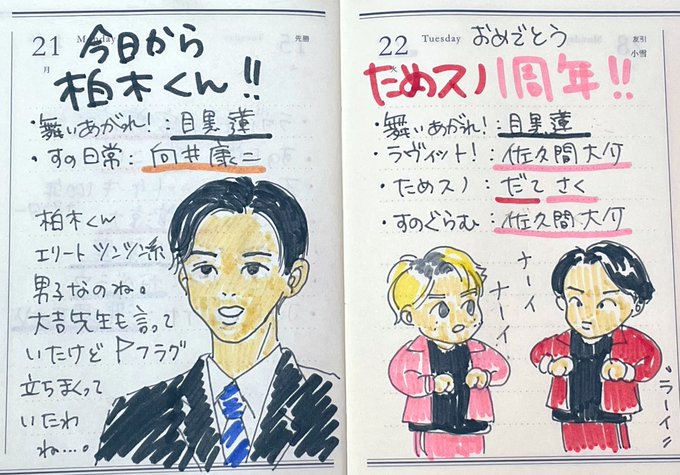 21
Monday
先勝
月
今日から
柏木くん!!
・舞いあがれ!:目黒蓮
・すの日常:向井康二
柏木くん
エリートツンツン系
男子なのね。
大吉先生も言って
いたけどPフラグ
立ちまくって
いたわ
ね…。
22
Tuesday
友引
小雪
おめでとう
ためスノ1周年!!
・舞いあがれ!:目黒蓮
・ラヴィット!:佐久間大介
・ためスノ:だて さく
・すのぐらむ:佐久間大介
ナーイ
ナーイ
ラーイ